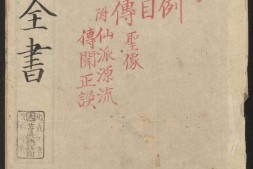 例
傳目
聖像
附 仙派源流
傳聞正誤
全書